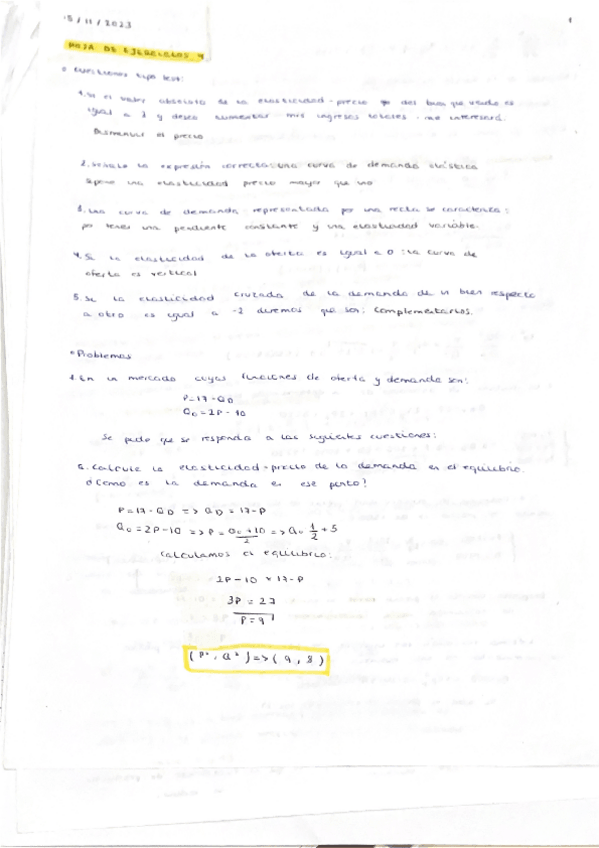 15/11/2023
1
HOJA DE EJERCICIOS 4
Cuestiones tipo test:
1. Si el valor absoluto de la elasticidad-precio del bien que vendo es
igual a 2 y deseo aumentar mis ingresos totales me interesará:
Disminuir el precio
2. Señale la expresión correcta: una curva de demanda elástica
Supone una elasticidad precio mayor que uno
3. Una curva de demanda representada por una recta se caracteriza:
por tener una pendiente constante y una elasticidad variable.
4. Si la elasticidad de la oferta es igual a 0: la curva de
oferta es vertical
5. Si la elasticidad cruzada de la demanda de un bien respecto
a otro es igual a -2 diremos que son: complementarios.
Problemas
1. En un mercado cuyas funciones de oferta y demanda son:
P=17-QD
QO=2P-10
Se pide que se responda a las siguientes cuestiones:
a. Calcule la elasticidad-precio de la demanda en el equilibrio.
¿Cómo es la demanda en ese punto?
P=17-QD => QD = 17-P
QO=2P-10 => P = QO+10/2 => QO 1/2 + 5
Calculamos el equilibrio:
2P-10 = 17-P
3P = 27
P=9
(P*, Q*) => (9, 8)